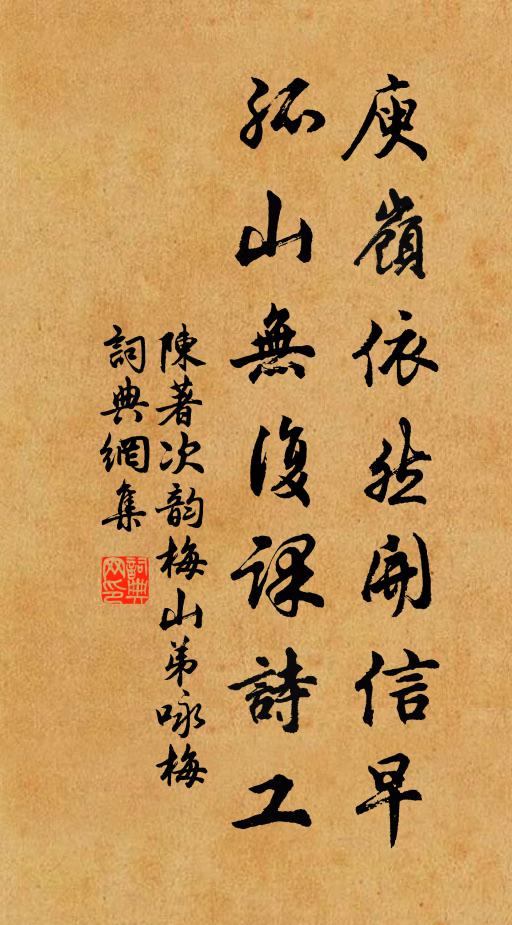 庾嶺依然開信早
孤山無復課詩工
陳著次韵梅山弟咏梅
詞典網集
詞典网印